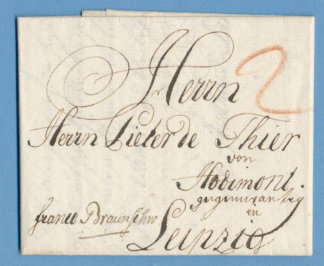 Herrn
2
Herrn Pieter de Thier
von
Hodimont
gegenwärtig
in
franco Braunschw
Leipzig